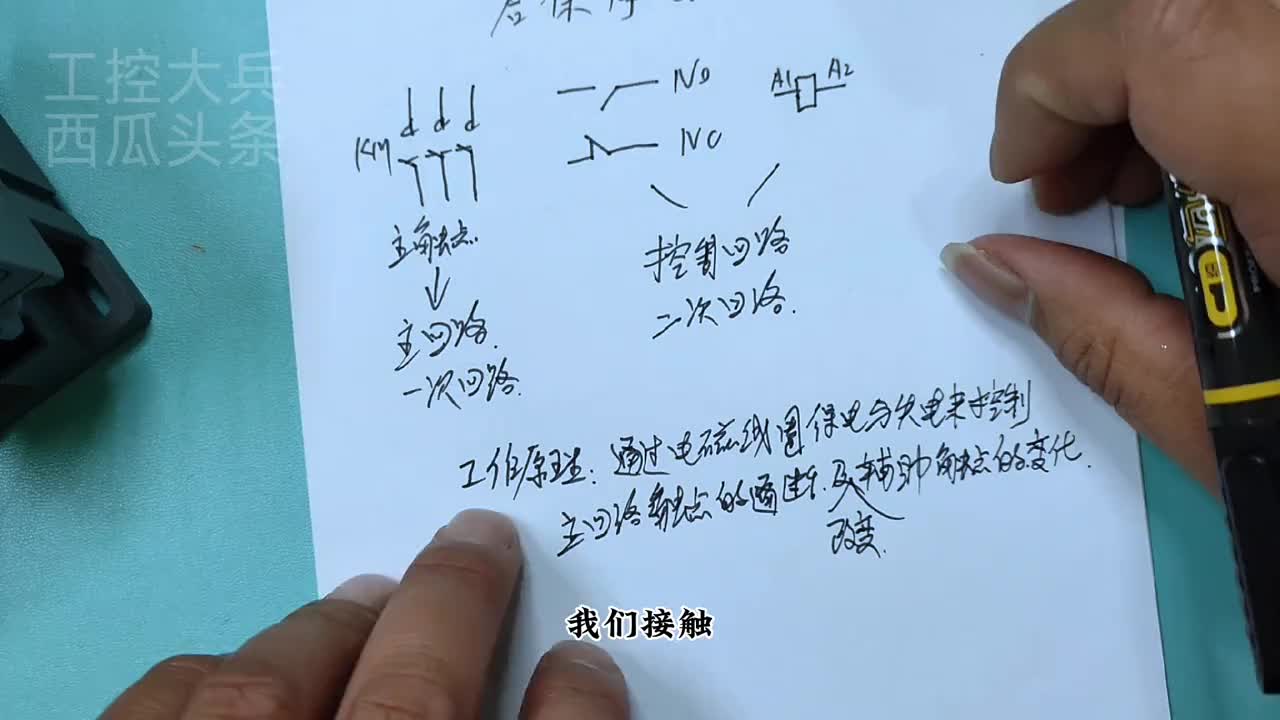 工控大兵
西瓜头条
NO
A1 A2
KM
NC
主触点.
控制回路
二次回路.
主回路.
一次回路.
工作原理: 通过电磁线圈得电与失电来控制
主回路触点的通断.及辅助触点的变化.
改变.
我们接触